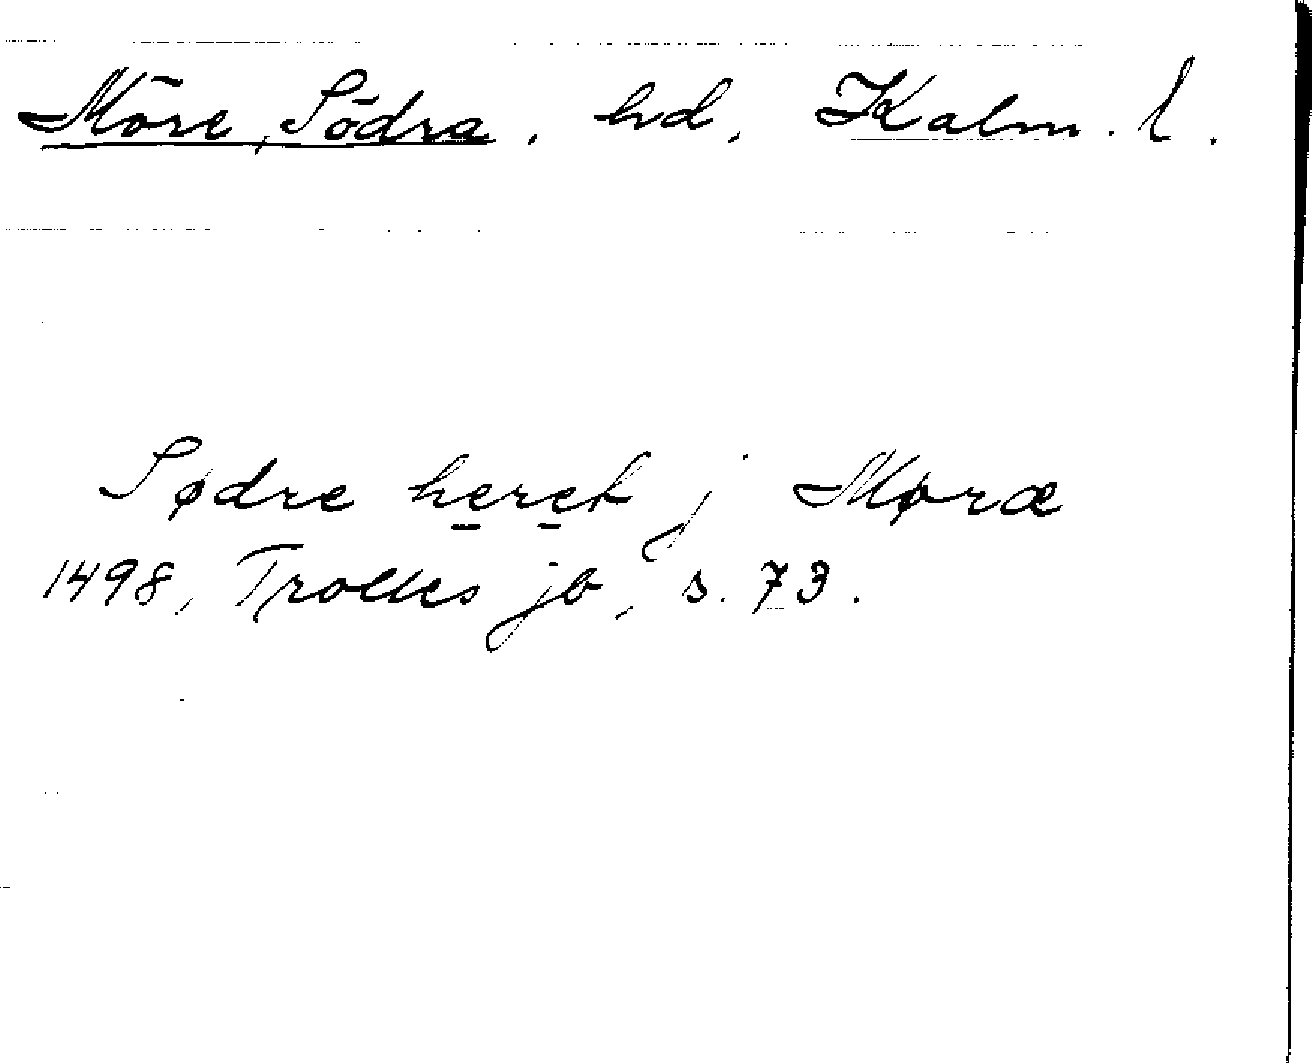 Möre, Södra. hd. Kalm. l.
Sødre heret j Møræ
1498, Trolles jb, s. 73.